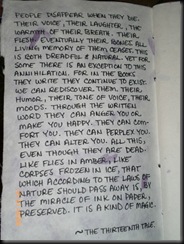 PEOPLE DISAPPEAR WHEN THEY DIE.
THEIR VOICE, THEIR LAUGHTER, THE
WARMTH OF THEIR BREATH. THEIR
FLESH. EVENTUALLY THEIR BONES. ALL
LIVING MEMORY OF THEM CEASES. THIS
IS BOTH DREADFUL & NATURAL. YET FOR
SOME THERE IS AN EXCEPTION TO THIS
ANNIHILATION. FOR IN THE BOOKS
THEY WRITE THEY CONTINUE TO EXIST.
WE CAN REDISCOVER THEM. THEIR
HUMOR, THEIR TONE OF VOICE, THEIR
MOODS. THROUGH THE WRITTEN
WORD THEY CAN ANGER YOU OR
MAKE YOU HAPPY. THEY CAN COM-
FORT YOU. THEY CAN PERPLEX YOU.
THEY CAN ALTER YOU. ALL THIS,
EVEN THOUGH THEY ARE DEAD.
LIKE FLIES IN AMBER, LIKE
CORPSES FROZEN IN ICE, THAT
WHICH ACCORDING TO THE LAWS OF
NATURE SHOULD PASS AWAY IS, BY
THE MIRACLE OF INK ON PAPER,
PRESERVED. IT IS A KIND OF MAGIC.
~ THE THIRTEENTH TALE